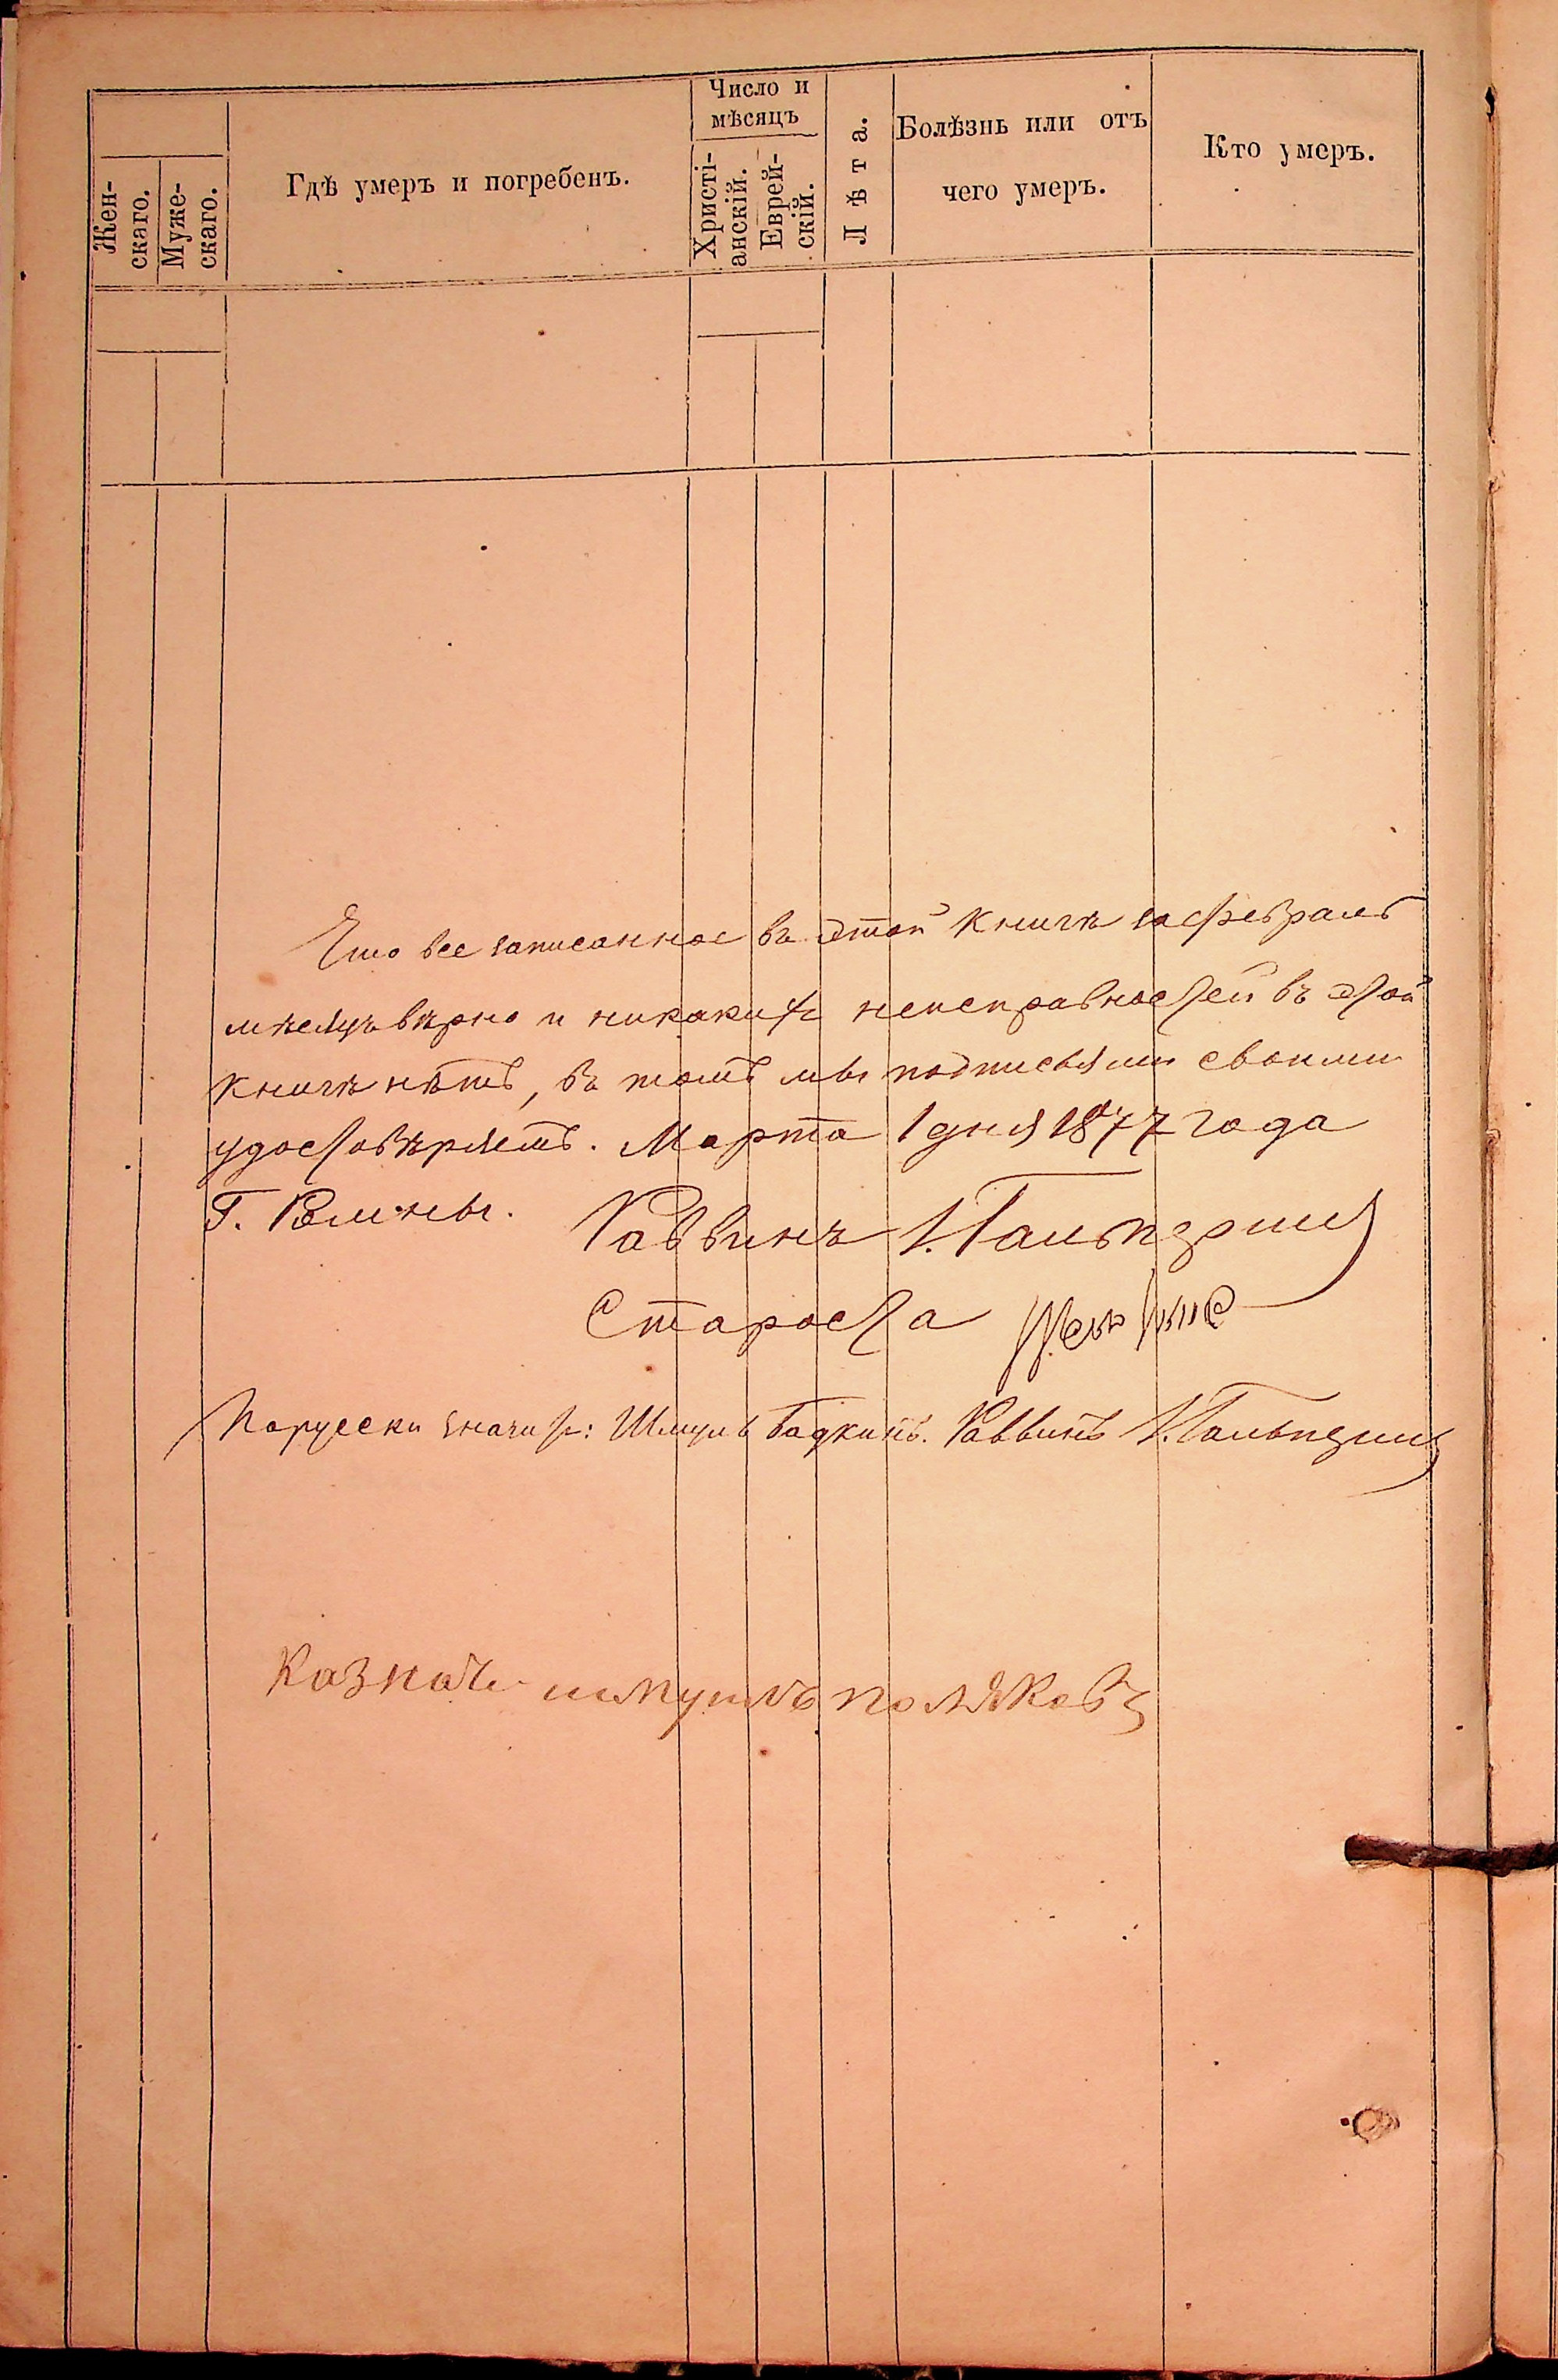 Жен-
скаго.
Муже-
скаго.
Гдѣ умеръ и погребенъ.
Число и
мѣсяцъ
Христі-
анскій.
Еврей-
скій.
Лѣта.
Болѣзнь или отъ
чего умеръ.
Кто умеръ.
Что все записанное въ этой книгѣ за февраль
мѣсяцъ вѣрно и никакихъ неисправностей въ этой
книгѣ нѣтъ, въ томъ мы подписями своими
удостовѣряемъ. Марта 1 дня 1877 года
Г. Ромны. Раввинъ И. Гальперин
Староста
По русски значитъ: Шмуль Раввинъ И. Гальперин
Казначей шмуиль поляковъ